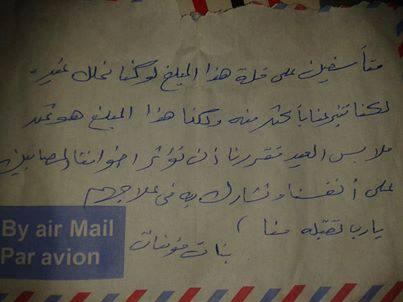 متأسفين على قلة هذا المبلغ لو كنا نملك غيره
لكنا تبرعنا بأكثر منه ولكنا هذا المبلغ هو ثمن
ملابس العيد فقررنا أن نؤثر اخواننا المصابين
على أنفسنا ونشارك به في علاجهم
يارب تقبله منا )
بنات مؤمنات
By air Mail
Par avion